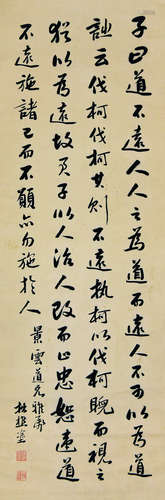 子曰道不遠人人之為道而遠人不可以為道
詩云伐柯伐柯其則不遠執柯以伐柯睨而視之
猶以為遠故君子以人治人改而止忠恕違道
不遠施諸己而不願亦勿施於人
景雲道兄雅屬